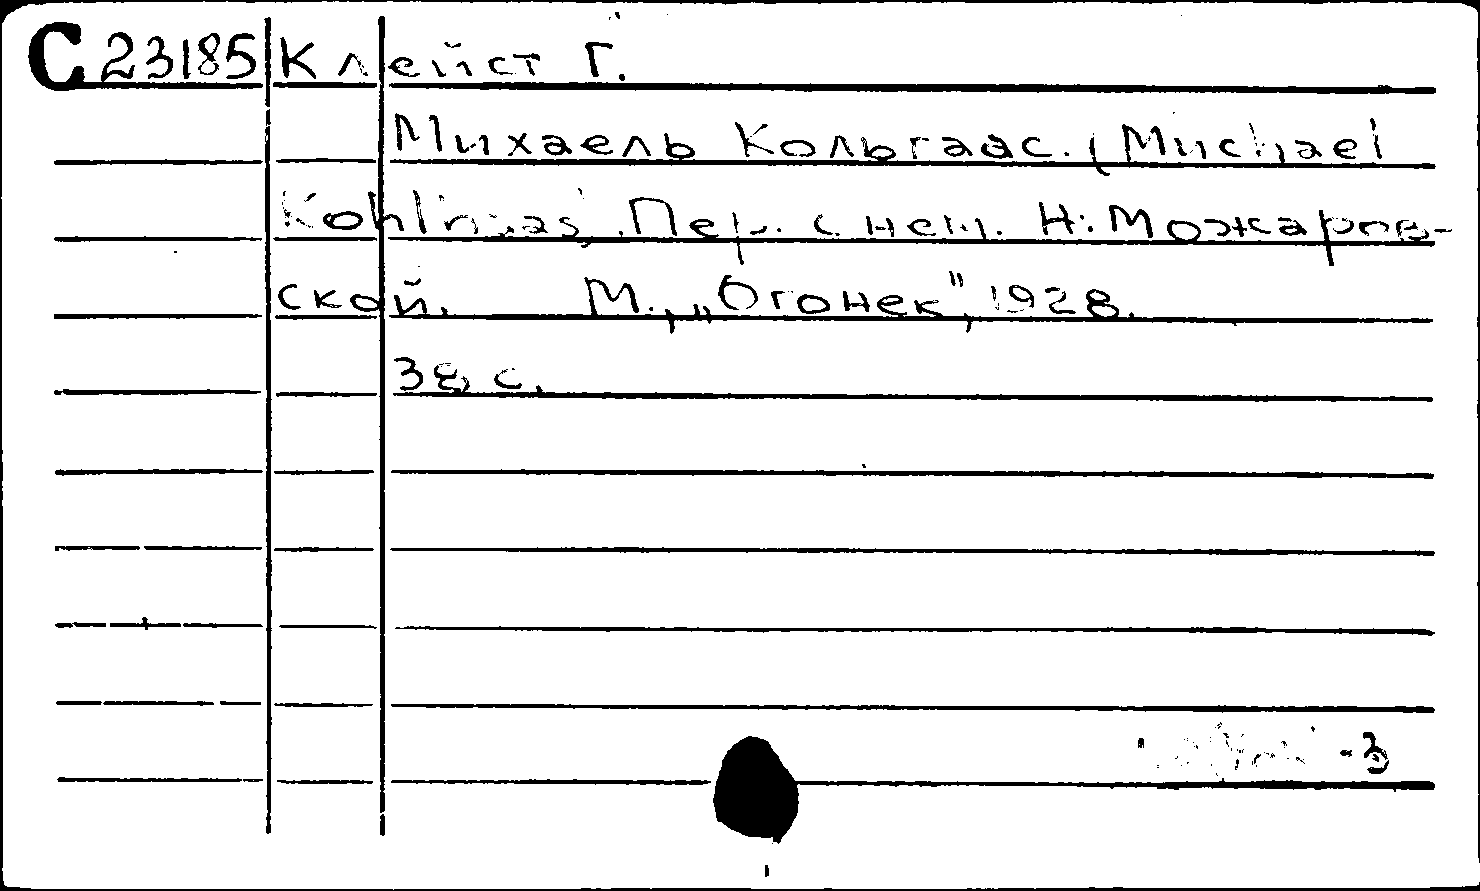 С 23185 Клейст Г.
Михаель Кольгаас. (Michael
Kohlhaas). Пер. с нем. Н. Можаров-
ской. М., „Огонек", 1928.
38 с.
-3